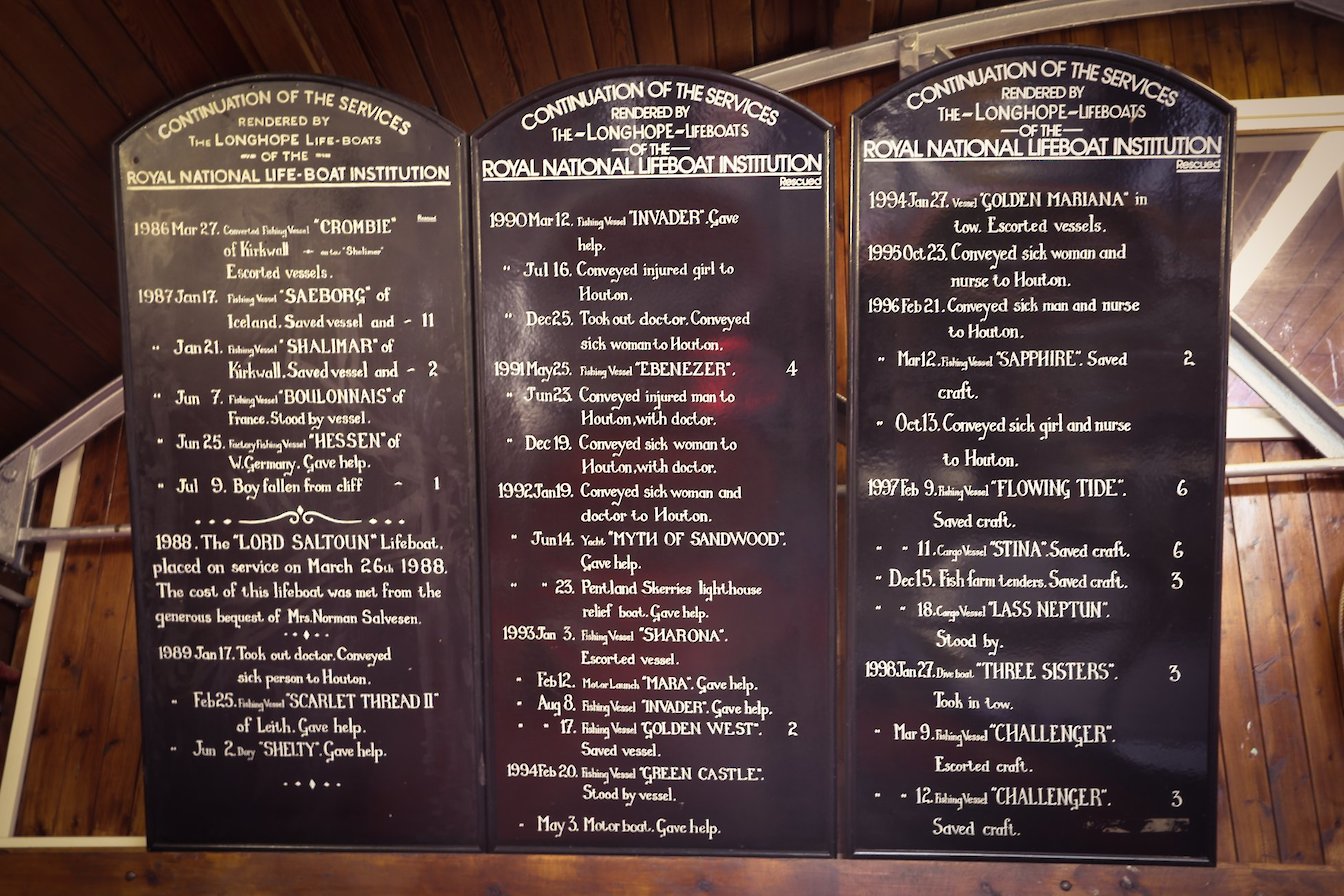 CONTINUATION OF THE SERVICES
RENDERED BY
THE LONGHOPE LIFE-BOATS
OF THE
ROYAL NATIONAL LIFE-BOAT INSTITUTION
Rescued
1986 Mar 27. Converted Fishing Vessel "CROMBIE"
of Kirkwall - ex tow "Shalimar"
Escorted vessels.
1987 Jan 17. Fishing Vessel "SAEBORG" of
Iceland. Saved vessel and - 11
" Jan 21. Fishing Vessel "SHALIMAR" of
Kirkwall. Saved vessel and - 2
" Jun 7. Fishing Vessel "BOULONNAIS" of
France. Stood by vessel.
" Jun 25. Factory Fishing Vessel "HESSEN" of
W. Germany. Gave help.
" Jul 9. Boy fallen from cliff - 1
1988. The "LORD SALTOUN" Lifeboat,
placed on service on March 26th 1988.
The cost of this lifeboat was met from the
generous bequest of Mrs. Norman Salvesen.
1989 Jan 17. Took out doctor. Conveyed
sick person to Houton.
" Feb 25. Fishing Vessel "SCARLET THREAD II"
of Leith. Gave help.
" Jun 2. Dory "SHELTY". Gave help.
CONTINUATION OF THE SERVICES
RENDERED BY
THE-LONGHOPE-LIFEBOATS
-OF THE-
ROYAL NATIONAL LIFEBOAT INSTITUTION
Rescued
1990 Mar 12. Fishing Vessel "INVADER". Gave
help.
" Jul 16. Conveyed injured girl to
Houton.
" Dec 25. Took out doctor. Conveyed
sick woman to Houton.
1991 May 25. Fishing Vessel "EBENEZER". 4
" Jun 23. Conveyed injured man to
Houton, with doctor.
" Dec 19. Conveyed sick woman to
Houton, with doctor.
1992 Jan 19. Conveyed sick woman and
doctor to Houton.
" Jun 14. Yacht "MYTH OF SANDWOOD".
Gave help.
" " 23. Pentland Skerries lighthouse
relief boat. Gave help.
1993 Jan 3. Fishing Vessel "SHARONA".
Escorted vessel.
" Feb 12. Motor Launch "MARA". Gave help.
" Aug 8. Fishing Vessel "INVADER". Gave help.
" " 17. Fishing Vessel "GOLDEN WEST". 2
Saved vessel.
1994 Feb 20. Fishing Vessel "GREEN CASTLE".
Stood by vessel.
" May 3. Motor boat. Gave help.
CONTINUATION OF THE SERVICES
RENDERED BY
THE-LONGHOPE-LIFEBOATS
-OF THE-
ROYAL NATIONAL LIFEBOAT INSTITUTION
Rescued
1994 Jan 27. Vessel "GOLDEN MARIANA" in
tow. Escorted vessels.
1995 Oct 23. Conveyed sick woman and
nurse to Houton.
1996 Feb 21. Conveyed sick man and nurse
to Houton.
" Mar 12. Fishing Vessel "SAPPHIRE". Saved 2
craft.
" Oct 13. Conveyed sick girl and nurse
to Houton.
1997 Feb 9. Fishing Vessel "FLOWING TIDE". 6
Saved craft.
" " 11. Cargo Vessel "STINA". Saved craft. 6
" Dec 15. Fish farm tenders. Saved craft. 3
" " 18. Cargo Vessel "LASS NEPTUN".
Stood by.
1998 Jan 27. Dive boat "THREE SISTERS". 3
Took in tow.
" Mar 9. Fishing Vessel "CHALLENGER".
Escorted craft.
" " 12. Fishing Vessel "CHALLENGER". 3
Saved craft.